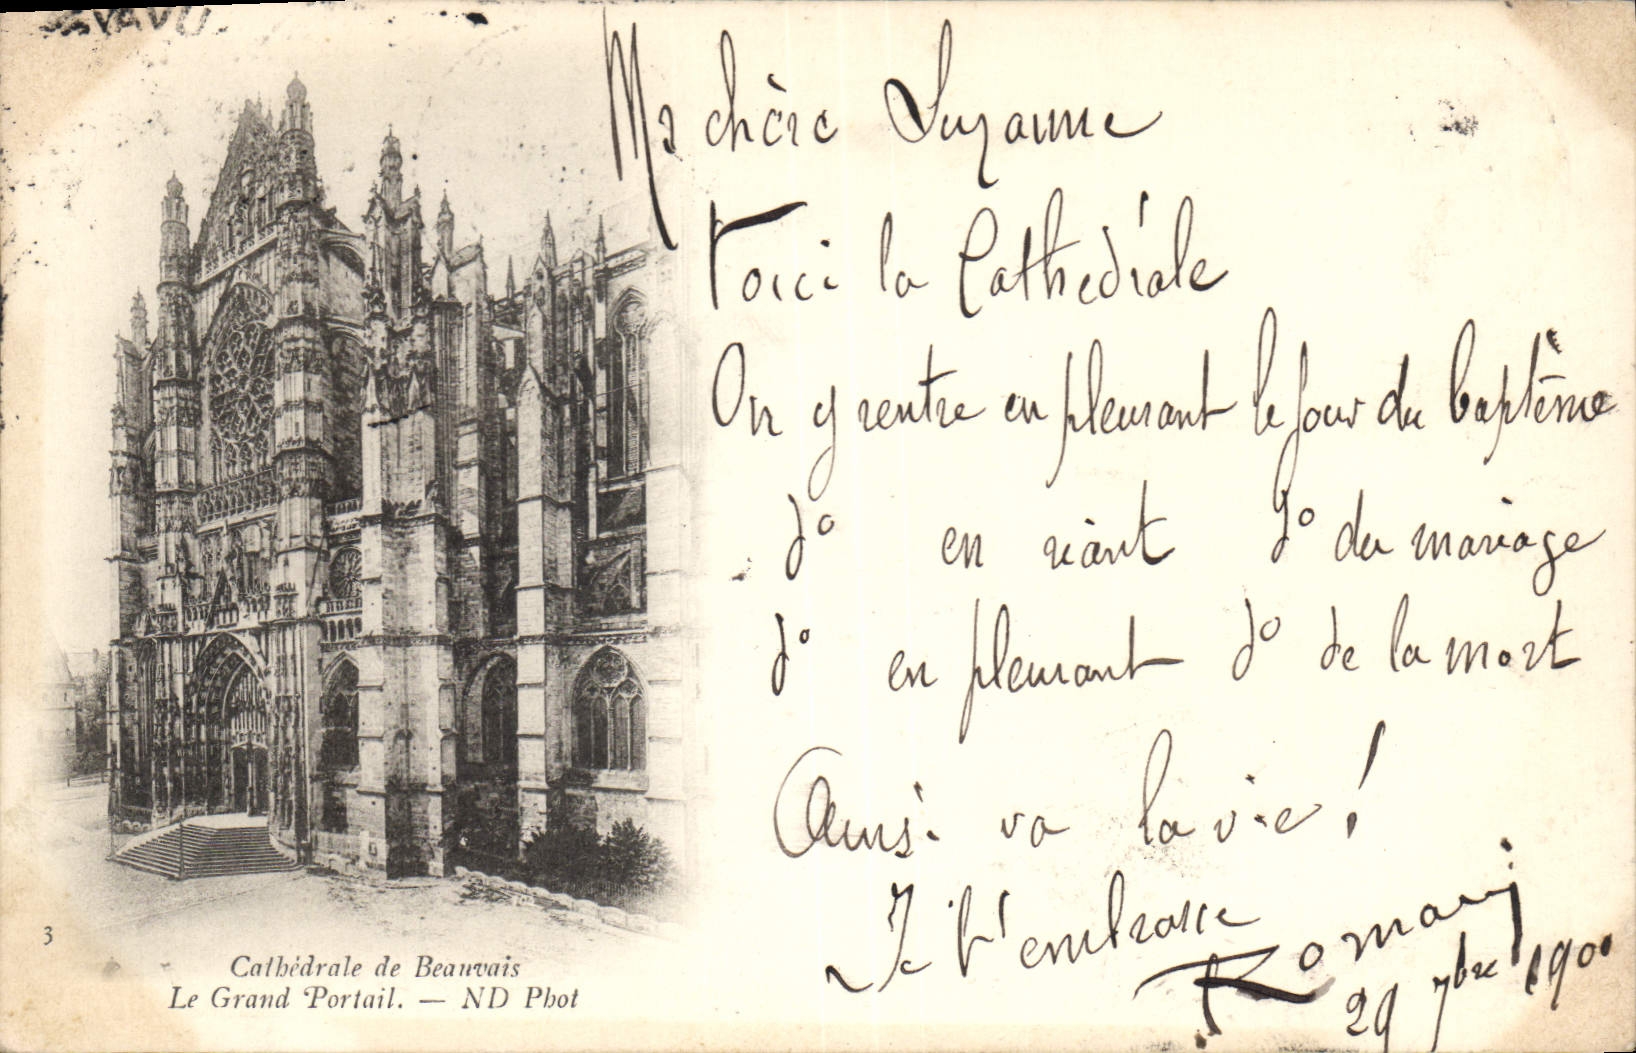 Ma chère Suzanne
Voici la Cathédrale
On y rentre en pleurant le jour du baptême
d° en riant d° du mariage
d° en pleurant d° de la mort
Ainsi va la vie !
Je t'embrasse
Romain
29 7bre 1900
3
Cathédrale de Beauvais
Le Grand Portail. — ND Phot